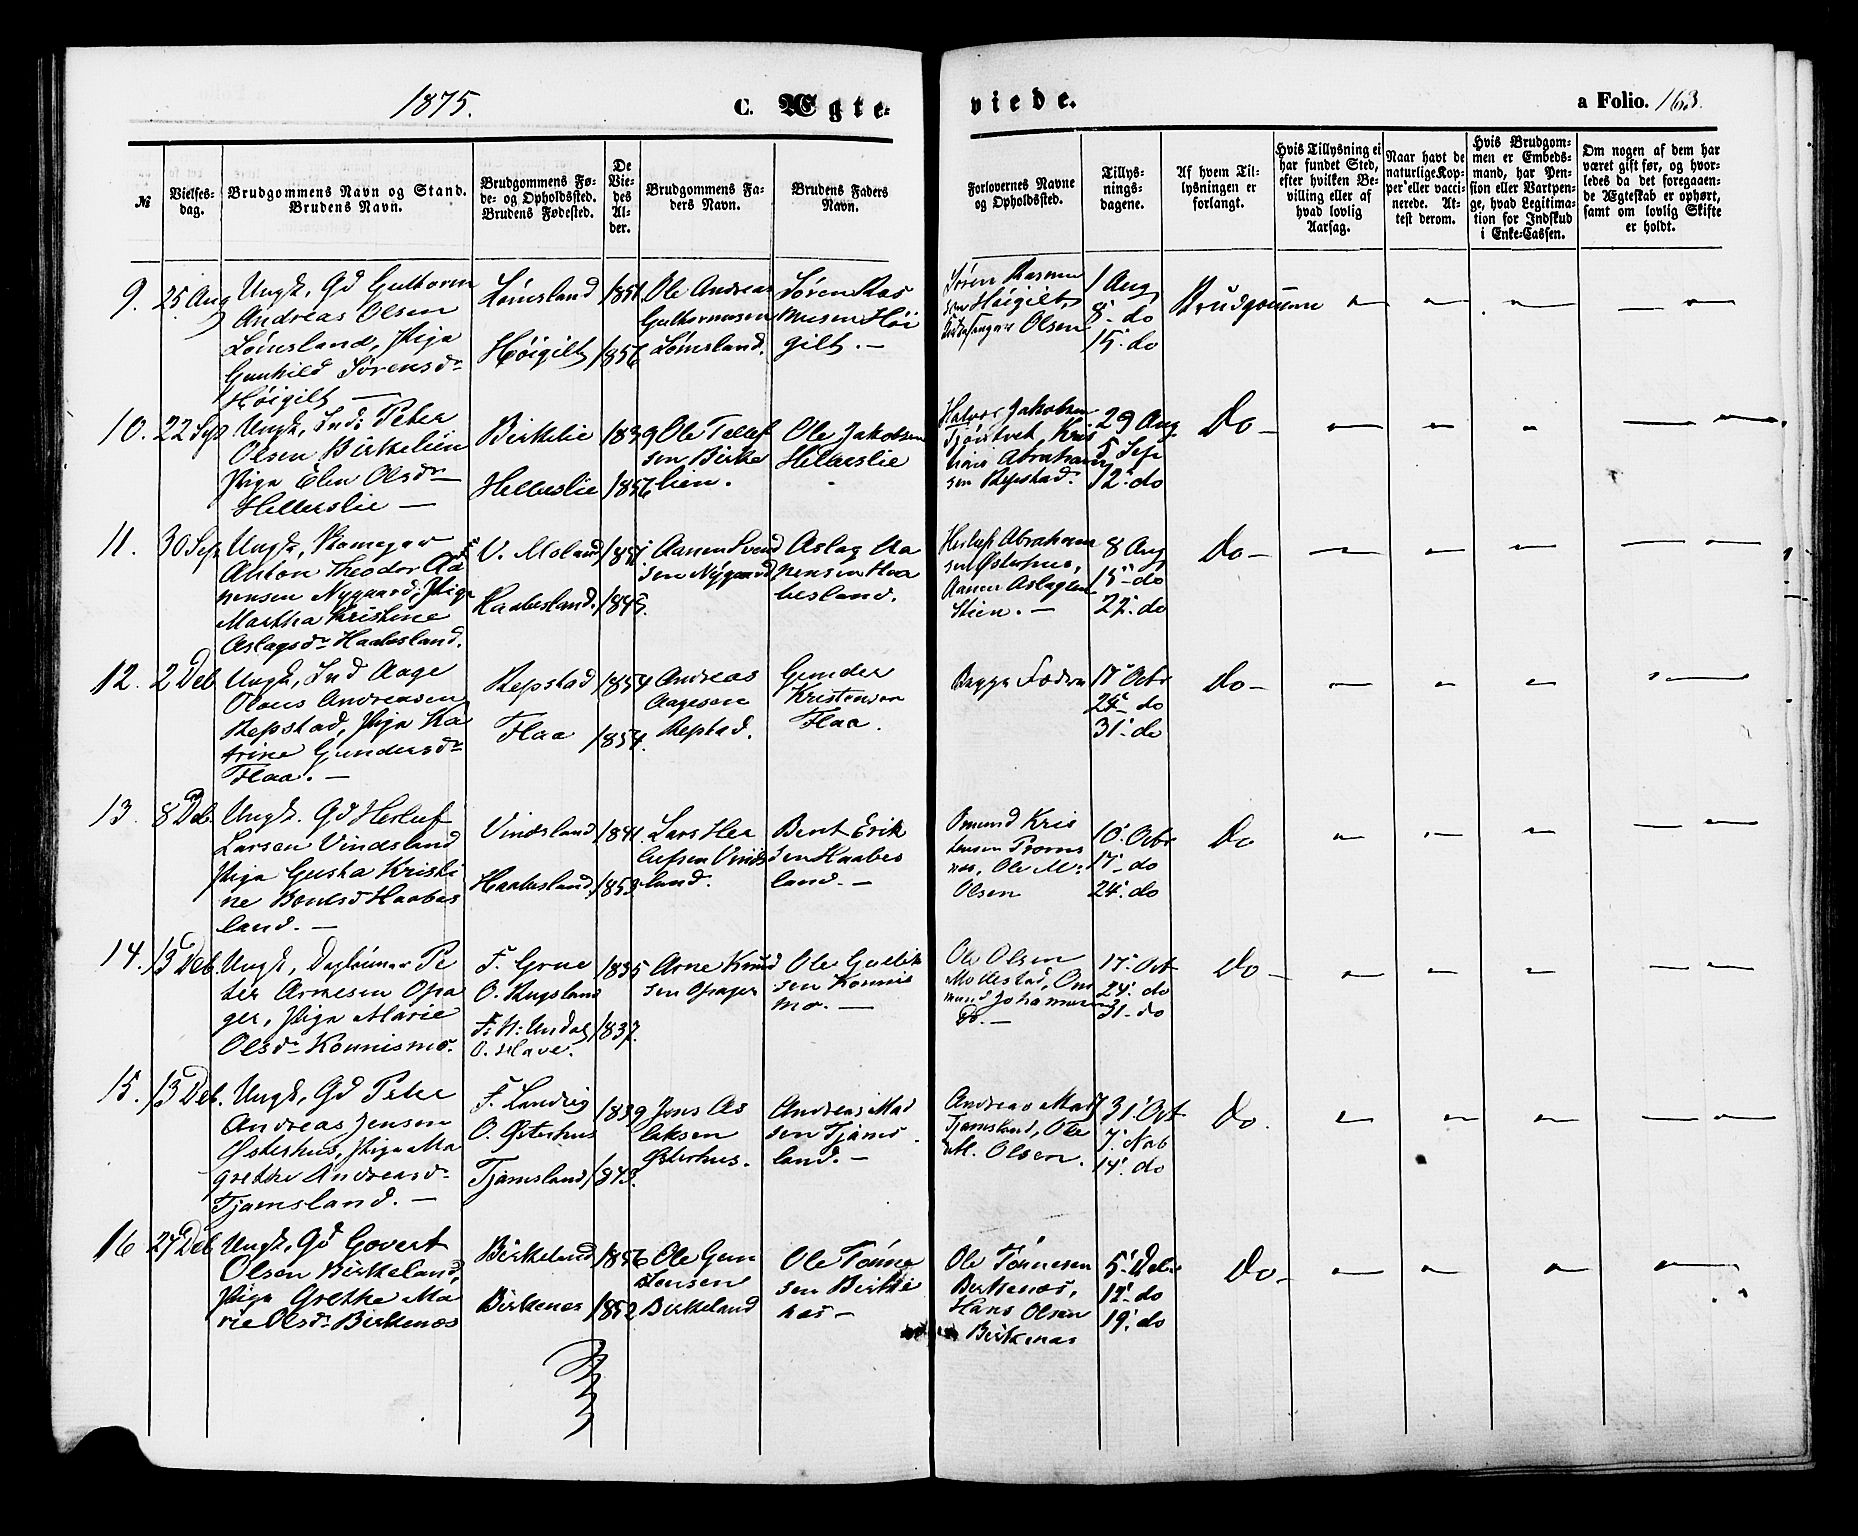 1875.
C. Ægte-
viede.
a Folio. 163.
№
Vielses-
dag.
Brudgommens Navn og Stand.
Brudens Navn.
Brudgommens Fø-
de- og Opholdssted.
Brudens Fødested.
De
Vie-
des
Al-
der.
Brudgommens Fa-
ders Navn.
Brudens Faders
Navn.
Forlovernes Navne
og Opholdssted.
Tillys-
nings-
dagene.
Af hvem Til-
lysningen er
forlangt.
Hvis Tillysning ei
har fundet Sted,
efter hvilken Be-
villing eller af
hvad lovlig
Aarsag.
Naar havt de
naturlige Kop-
per eller vacci-
nerede. At-
test derom.
Hvis Brudgom-
men er Embeds-
mand, har Pen-
sion eller Vartpen-
ge, hvad Legitima-
tion for Indskud
i Enke-Cassen.
Om nogen af dem har
været gift før, og hvor-
ledes da det foregaaen-
de Ægteskab er ophørt,
samt om lovlig Skifte
er holdt.
9.
25 Aug
Ungk, Gd Guttorm
Andreas Olsen
Lømsland, Pige
Gunhild Sørensdr
Høigilt —
Lømsland
Høigilt
1851
1856
Ole Andreas
Guttormsen
Lømsland.
Søren Ras
musen Høi
gilt. —
Søren Rasmu
sen Høigilt,
Olsen
1 Aug
8- do
15- do
Brudgomme
10.
22 Sep
Ungk, Ind: Peter
Olsen Birkelien
Pige Elen Olsdr
Hellerslie —
Birkelie
Hellerslie
1839
1856
Ole Tellef
sen Birke
lien.
Ole Jakobsen
Hellerslie
Halvor Jakobsen
Kris
Abraham
sen Repstad.
29 Aug
5 Sep
12- do
Do —
11.
30 Sep
Ungk,
Anton Theodor Aa
nensen Nygaard, Pige
Martha Kristine
Aslagsdr Haabesland.
V. Moland
Haabesland.
1851
1845.
Aanen Svend
sen Nygaard
Aslag Aa
nensen Haa
besland.
Herluf Abraham
sen Østerhus,
Aanen Aslagsen
Stien. —
8 Aug
15- do
22- do
Do —
12.
2 Deb
Ungk, Ind Aage
Olaus Andreasen
Repstad, Pige Ka
trine Gundersdr
Flaa. —
Repstad
Flaa
1854
1854.
Andreas
Aagesen
Repstad.
Gunder
Kristensen
Flaa.
Begge Fædre
17 Octbr
24- do
31- do
Do —
13.
8 Deb.
Ungk. Gd Herluf
Larsen Vindsland
Pige Gusta Kristi
ne Bentsd Haabes
land. —
Vindsland
Haabesland,
1841.
1853.
Lars Her
lufsen Vinds
land.
Bent Erik
sen Haabes
land. —
Omund Kris
tensen
Ole M:
Olsen
10- Octbr
17- do
24- do
Do
14.
13 Deb.
Ungk, Pe
ter Arnesen Opa
ger, Pige Marie
Olsdr Konnismo.
F. Grue
O. Rugsland
F: N: Undal
O. Have.
1835
1837.
Arne Knud
sen Opager
Ole
sen Konnis
mo. —
Ole Olsen
Mollestad, Om
mund Johannesen
Do. —
17- Oct
24- do
31- do
Do —
15.
13 Deb.
Ungk, Gd Peter
Andreas Jensen
Østerhus, Pige Ma
grethe Andreasdr
Tjamsland. —
F. Landvig
O. Østerhus
Tjamsland,
1839
1843.
Jens As
laksen
Østerhus.
Andreas Mad
sen Tjams
land. —
Andreas Mads
Tjamsland, Ole
M. Olsen.
31- Oct
7- Nob
14- do
Do.
16
27 Deb
Ungk, Gd Govert
Olsen Birkeland,
Pige Grethe Ma
rie Olsdr Birkenæs
Birkeland
Birkenes
1856
1852
Ole Gun
Birkeland
Ole Tønne
sen Birke
næs —
Ole Tønnesen
Birkenæs,
Hans Olsen
Birkenæs
5- Deb.
12- do
19- do
Do. —